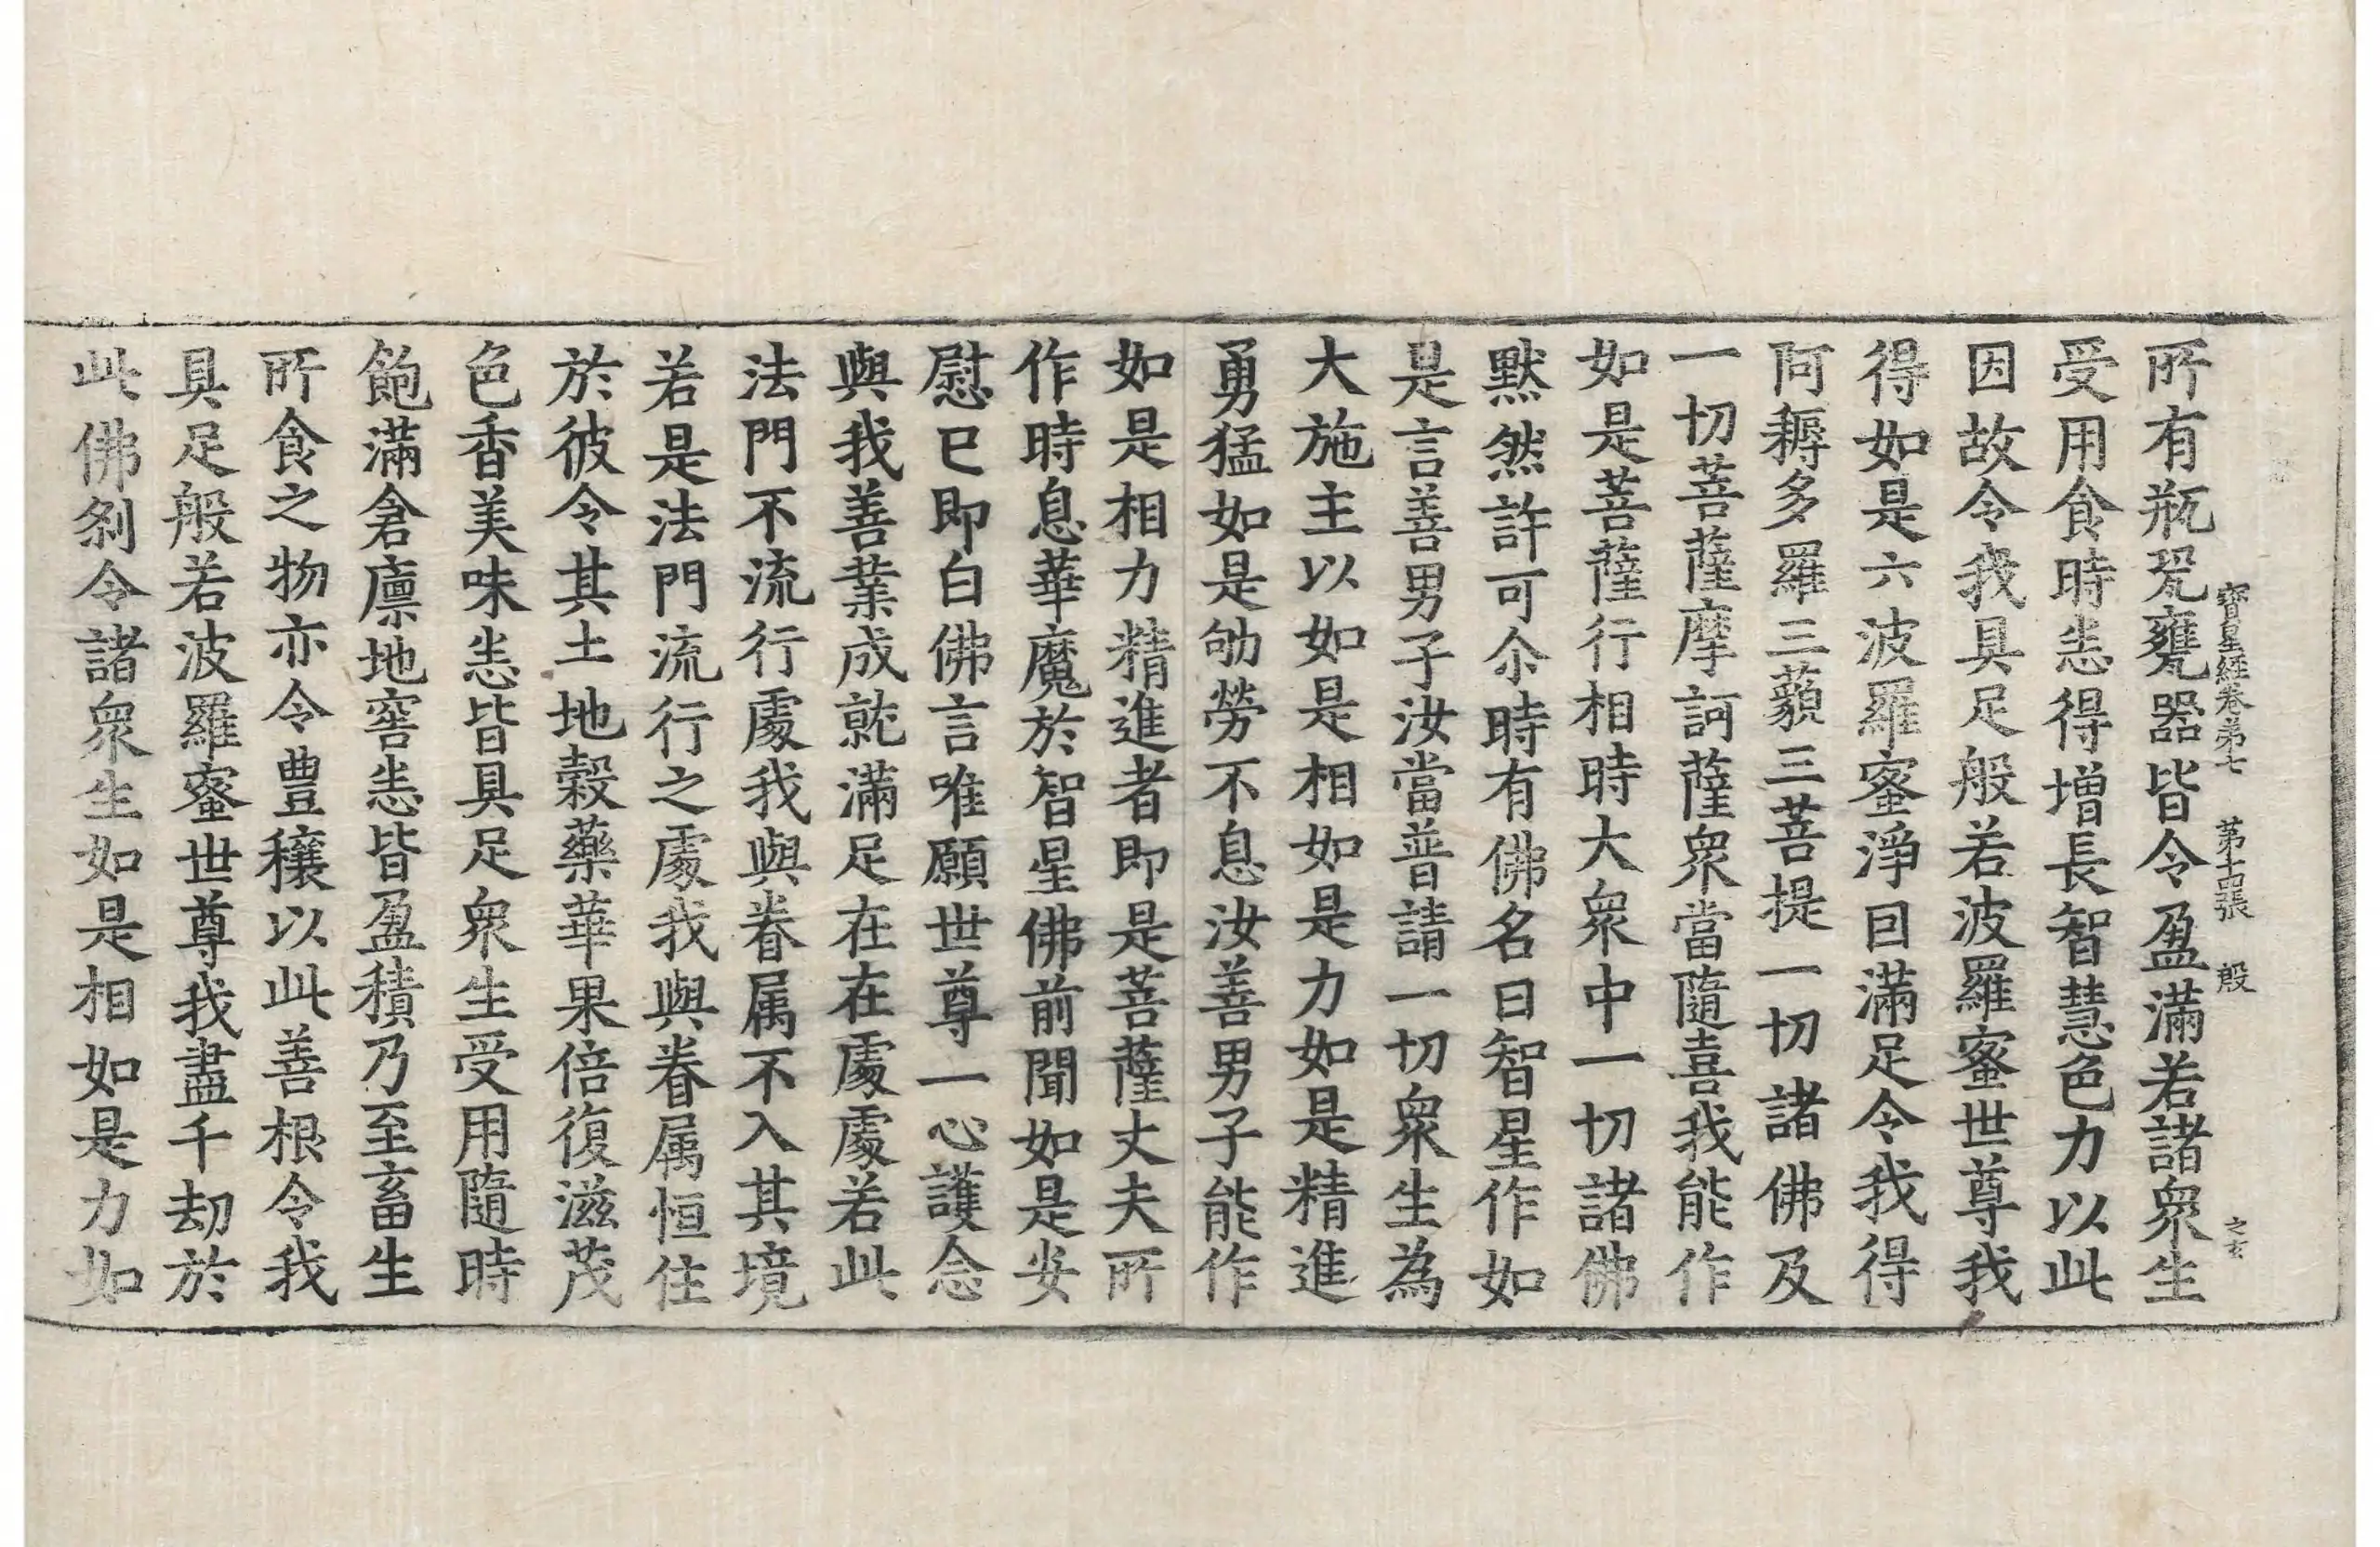 寶星經卷第七 第十四張 殷 之玄
所有瓶瓨甕器皆令盈滿若諸衆生
受用食時恙得增長智慧色力以此
因故令我具足般若波羅蜜世尊我
得如是六波羅蜜淨囙滿足令我得
阿耨多羅三藐三菩提一切諸佛及
一切菩薩摩訶薩衆當隨喜我能作
如是菩薩行相時大衆中一切諸佛
默然許可尒時有佛名曰智星作如
是言善男子汝當普請一切衆生為
大施主以如是相如是力如是精進
勇猛如是劬勞不息汝善男子能作
如是相力精進者即是菩薩丈夫所
作時息華魔於智星佛前聞如是安
慰已即白佛言唯願世尊一心護念
與我善業成就滿足在在處處若此
法門不流行處我與眷属不入其境
若是法門流行之處我與眷属恒住
於彼令其土地糓藥華果倍復滋茂
色香美味恙皆具足衆生受用隨時
飽滿倉廪地窖恙皆盈積乃至畜生
所食之物亦令豊穰以此善根令我
具足般若波羅蜜世尊我盡千劫於
此佛刹令諸衆生如是相如是力如